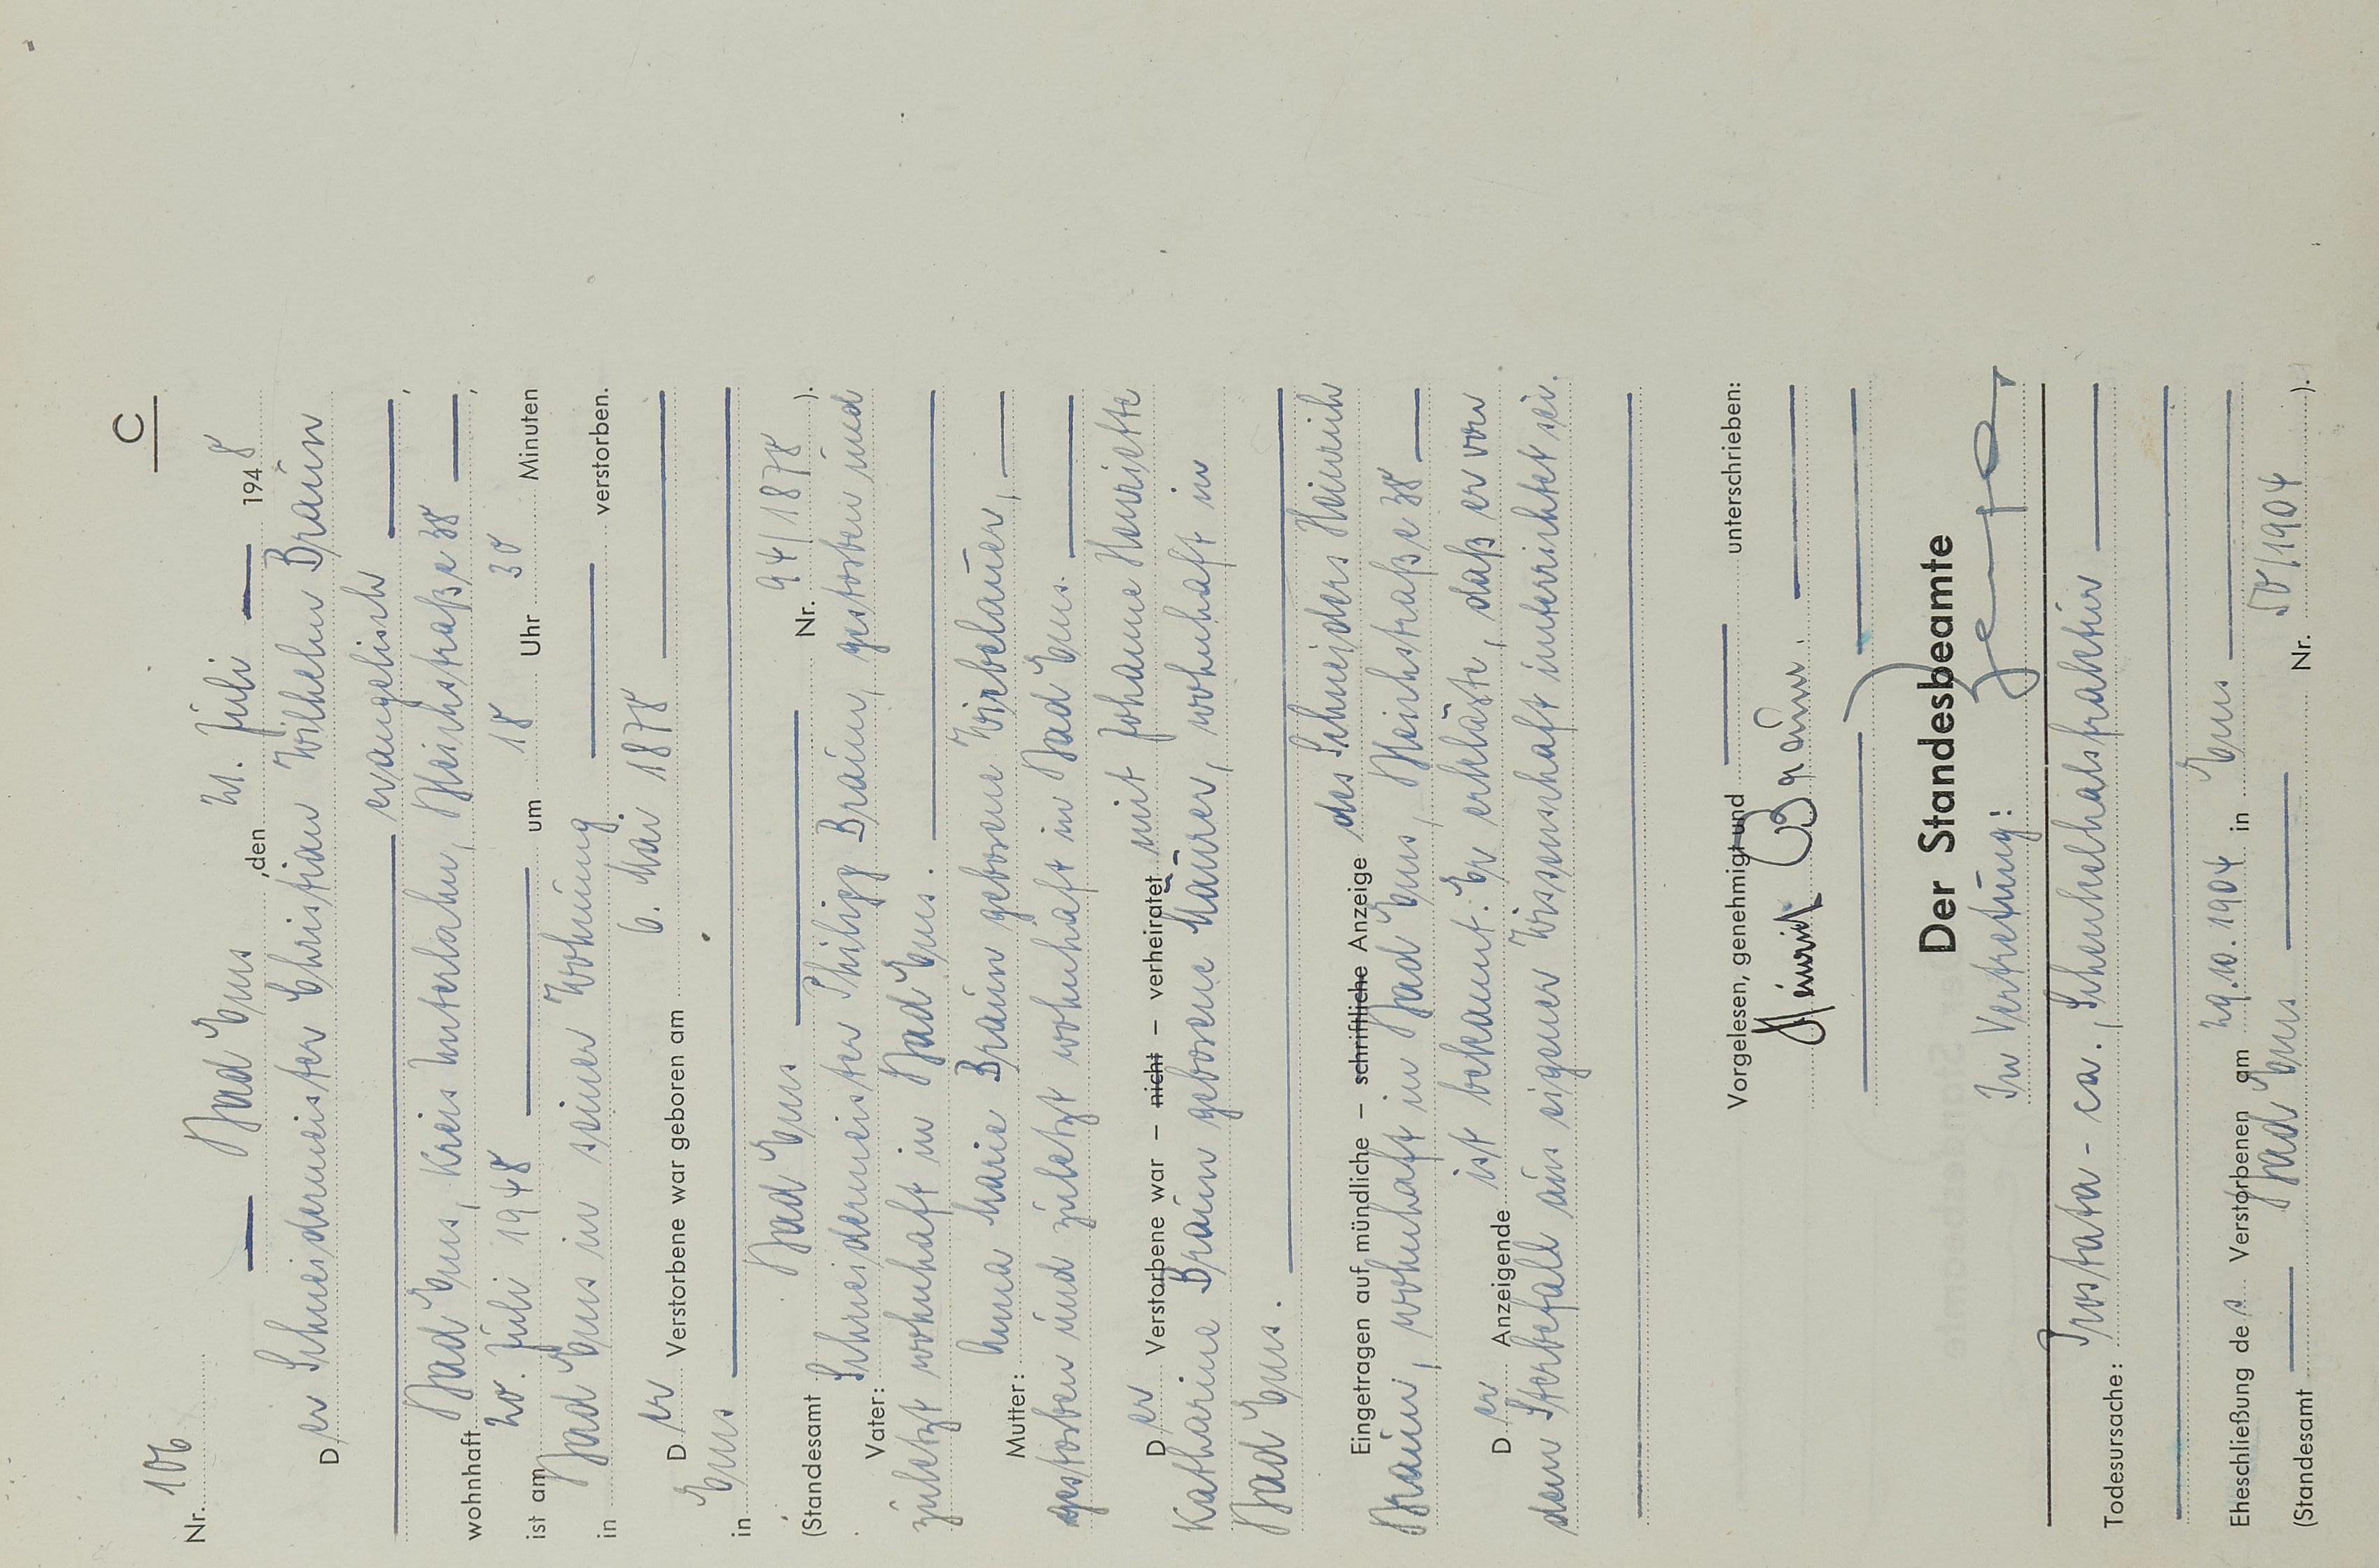 C
Nr. 106
Bad Ems, den 21. Juli 1948
Der Schneidermeister Christian Wilhelm Braun
evangelisch,
wohnhaft Bad Ems, Kreis Unterlahn, Bleichstraße 38,
ist am 20. Juli 1948 um 18 Uhr 30 Minuten
in Bad Ems in seiner Wohnung verstorben.
Der Verstorbene war geboren am 6. Mai 1878
in Ems
(Standesamt Bad Ems Nr. 94/1878).
Vater: Schneidermeister Philipp Braun, gestorben und
zuletzt wohnhaft in Bad Ems.
Mutter: Anna Marie Braun geborene Wirbelauer,
gestorben und zuletzt wohnhaft in Bad Ems.
Der Verstorbene war – nicht – verheiratet mit Johanne Henriette
Katharine Braun geborene Maurer, wohnhaft in
Bad Ems.
Eingetragen auf mündliche – schriftliche Anzeige des Schneiders Heinrich
Braun, wohnhaft in Bad Ems, Bleichstraße 38
Der Anzeigende ist bekannt. Er erklärte, daß er von
dem Sterbefall aus eigener Wissenschaft unterrichtet sei.
Vorgelesen, genehmigt und unterschrieben:
Heinrich Braun.
Der Standesbeamte
In Vertretung:
Todesursache: Prostata-ca., Schenkelhalsfraktur
Eheschließung des Verstorbenen am 29.10.1904 in Ems
(Standesamt Bad Ems Nr. 50/1904).